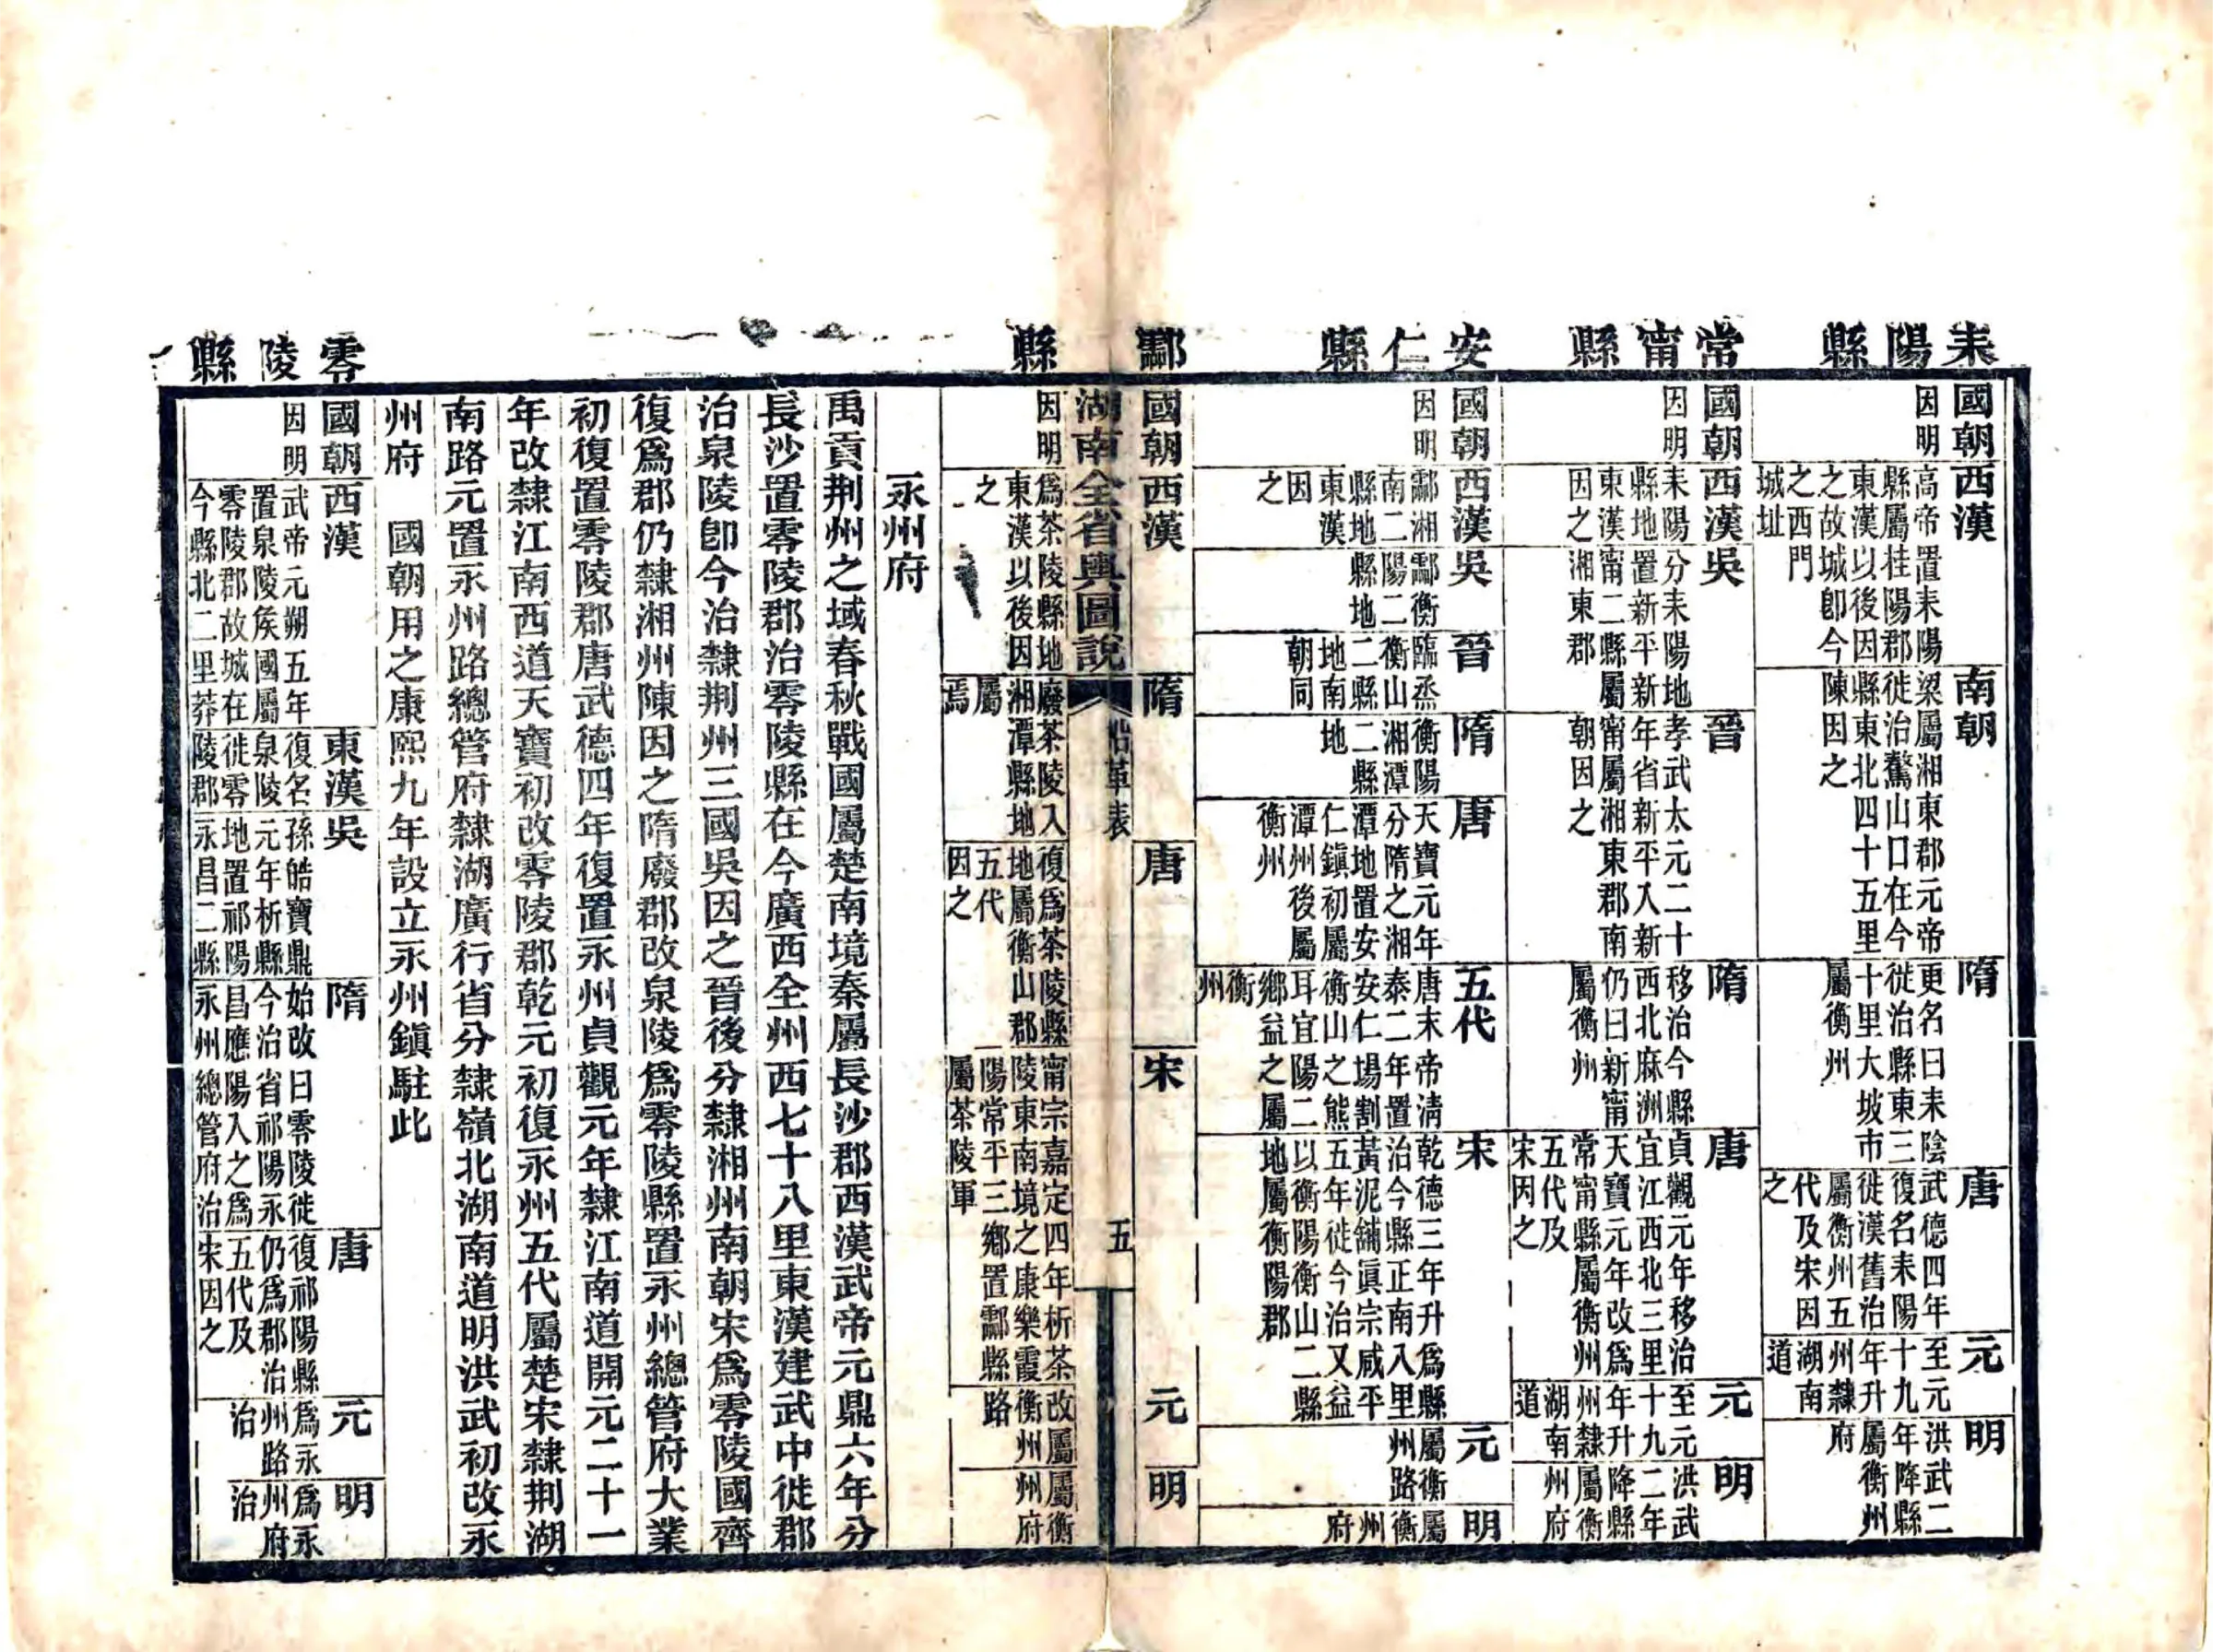 耒陽縣
國朝
因明
西漢
高帝置耒陽
縣屬桂陽郡
東漢以後因
之故城卽今
之西門
城址
南朝
梁屬湘東郡元帝
徙治鰲山口在今
縣東北四十五里
陳因之
隋
更名曰耒陰
徙治縣東三
十里大坡市
屬衡州
唐
武德四年
復名耒陽
徙漢舊治
屬衡州五
代及宋因
之
元
至元
十九
年升
州隸
湖南
道
明
洪武二
年降縣
屬衡州
府
常甯縣
國朝
因明
西漢
耒陽
縣地
東漢
因之
吳
分耒陽地
置新平新
甯二縣屬
湘東郡
晉
孝武太元二十
年省新平入新
甯屬湘東郡南
朝因之
隋
移治今縣
西北麻洲
仍曰新甯
屬衡州
唐
貞觀元年移治
宜江西北三里
天寶元年改爲
常甯縣屬衡州
五代及
宋因之
元
至元
十九
年升
州隸
湖南
道
明
洪武
二年
降縣
屬衡
州府
安仁縣
國朝
因明
西漢
酃湘
南二
縣地
東漢
因
之
吳
酃衡
陽二
縣地
晉
臨烝
衡山
二縣
地南
朝同
隋
衡陽
湘潭
二縣
地
唐
天寶元年
分隋之湘
潭地置安
仁鎭初屬
潭州後屬
衡州
五代
唐末帝淸
泰二年置
安仁場割
衡山之熊
耳宜陽二
鄉益之屬
衡
州
宋
乾德三年升爲縣
治今縣正南入里
黃泥鋪眞宗咸平
五年徙今治又益
以衡陽衡山二縣
地屬衡陽郡
元
屬衡
州路
明
屬衡州府
酃縣
國朝
因明
西漢
爲茶陵縣地
東漢以後因
之
隋
廢茶陵入
湘潭縣地
屬
焉
唐
復爲茶陵縣
地屬衡山郡
五代
因之
宋
甯宗嘉定四年析茶
陵東南境之康樂霞
陽常平三鄉置酃縣
屬茶陵軍
元
改屬
衡州
路
明
屬衡
州府
湖南全省輿圖說
沿革表
五
永州府
禹貢荆州之域春秋戰國屬楚南境秦屬長沙郡西漢武帝元鼎六年分
長沙置零陵郡治零陵縣在今廣西全州西七十八里東漢建武中徙郡
治泉陵卽今治隸荆州三國吳因之晉後分隸湘州南朝宋爲零陵國齊
復爲郡仍隸湘州陳因之隋廢郡改泉陵爲零陵縣置永州總管府大業
初復置零陵郡唐武德四年復置永州貞觀元年隸江南道開元二十一
年改隸江南西道天寶初改零陵郡乾元初復永州五代屬楚宋隸荆湖
南路元置永州路總管府隸湖廣行省分隸嶺北湖南道明洪武初改永
州府　國朝用之康熙九年設立永州鎭駐此
零陵縣
國朝
因明
西漢
武帝元朔五年
置泉陵矦國屬
零陵郡故城在
今縣北二里莽
東漢
復名
泉陵
徙零
陵郡
吳
孫皓寶鼎
元年析縣
地置祁陽
永昌二縣
隋
始改曰零陵徙
今治省祁陽永
昌應陽入之爲
永州總管府治
唐
復祁陽縣
仍爲郡治
五代及
宋因之
元
爲永
州路
治
明
爲永
州府
治